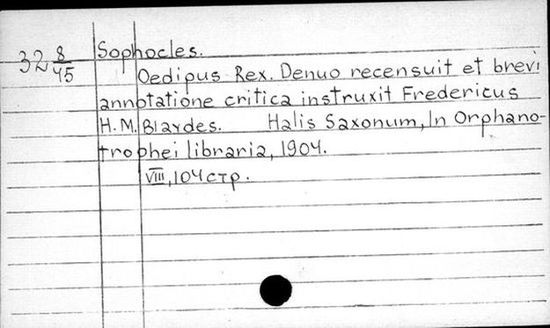 32 8/45
Sophocles.
Oedipus Rex. Denuo recensuit et brevi
annotatione critica instruxit Fredericus
H.M. Blaydes. Halis Saxonum, In Orphano-
trophei libraria, 1904.
VIII, 104 стр.